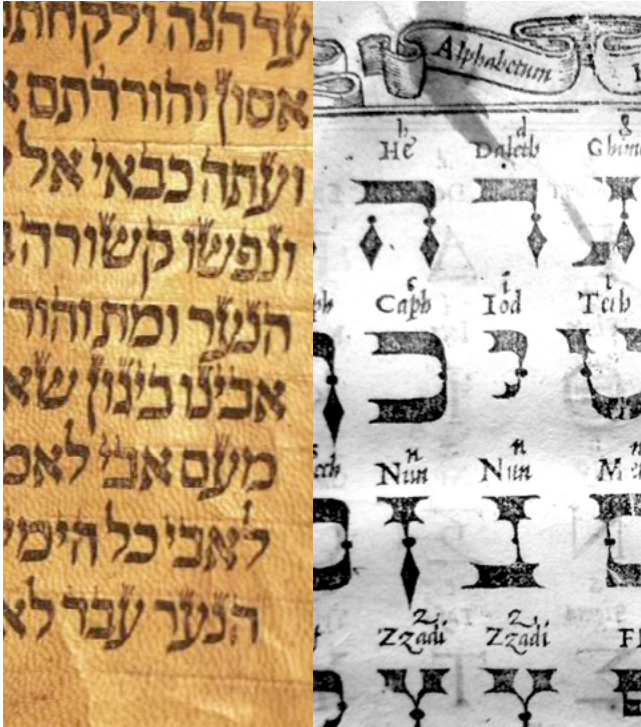 עד הנה ולקחתם
אסון והורדתם
ועתה כבאי אל
ונפשו קשורה
הנער ומת והור
אבינו ביגון שא
מעם אבי לאמ
לאבי כל הימי
הנער עבד לא
Alphabetum
h d g
He Daleth Ghim
ג ד ה
c i t
Caph Iod Teth
ט י כ ך
n n
Nun Nun
נ ן
z z
Zzadi Zzadi
צ ץ